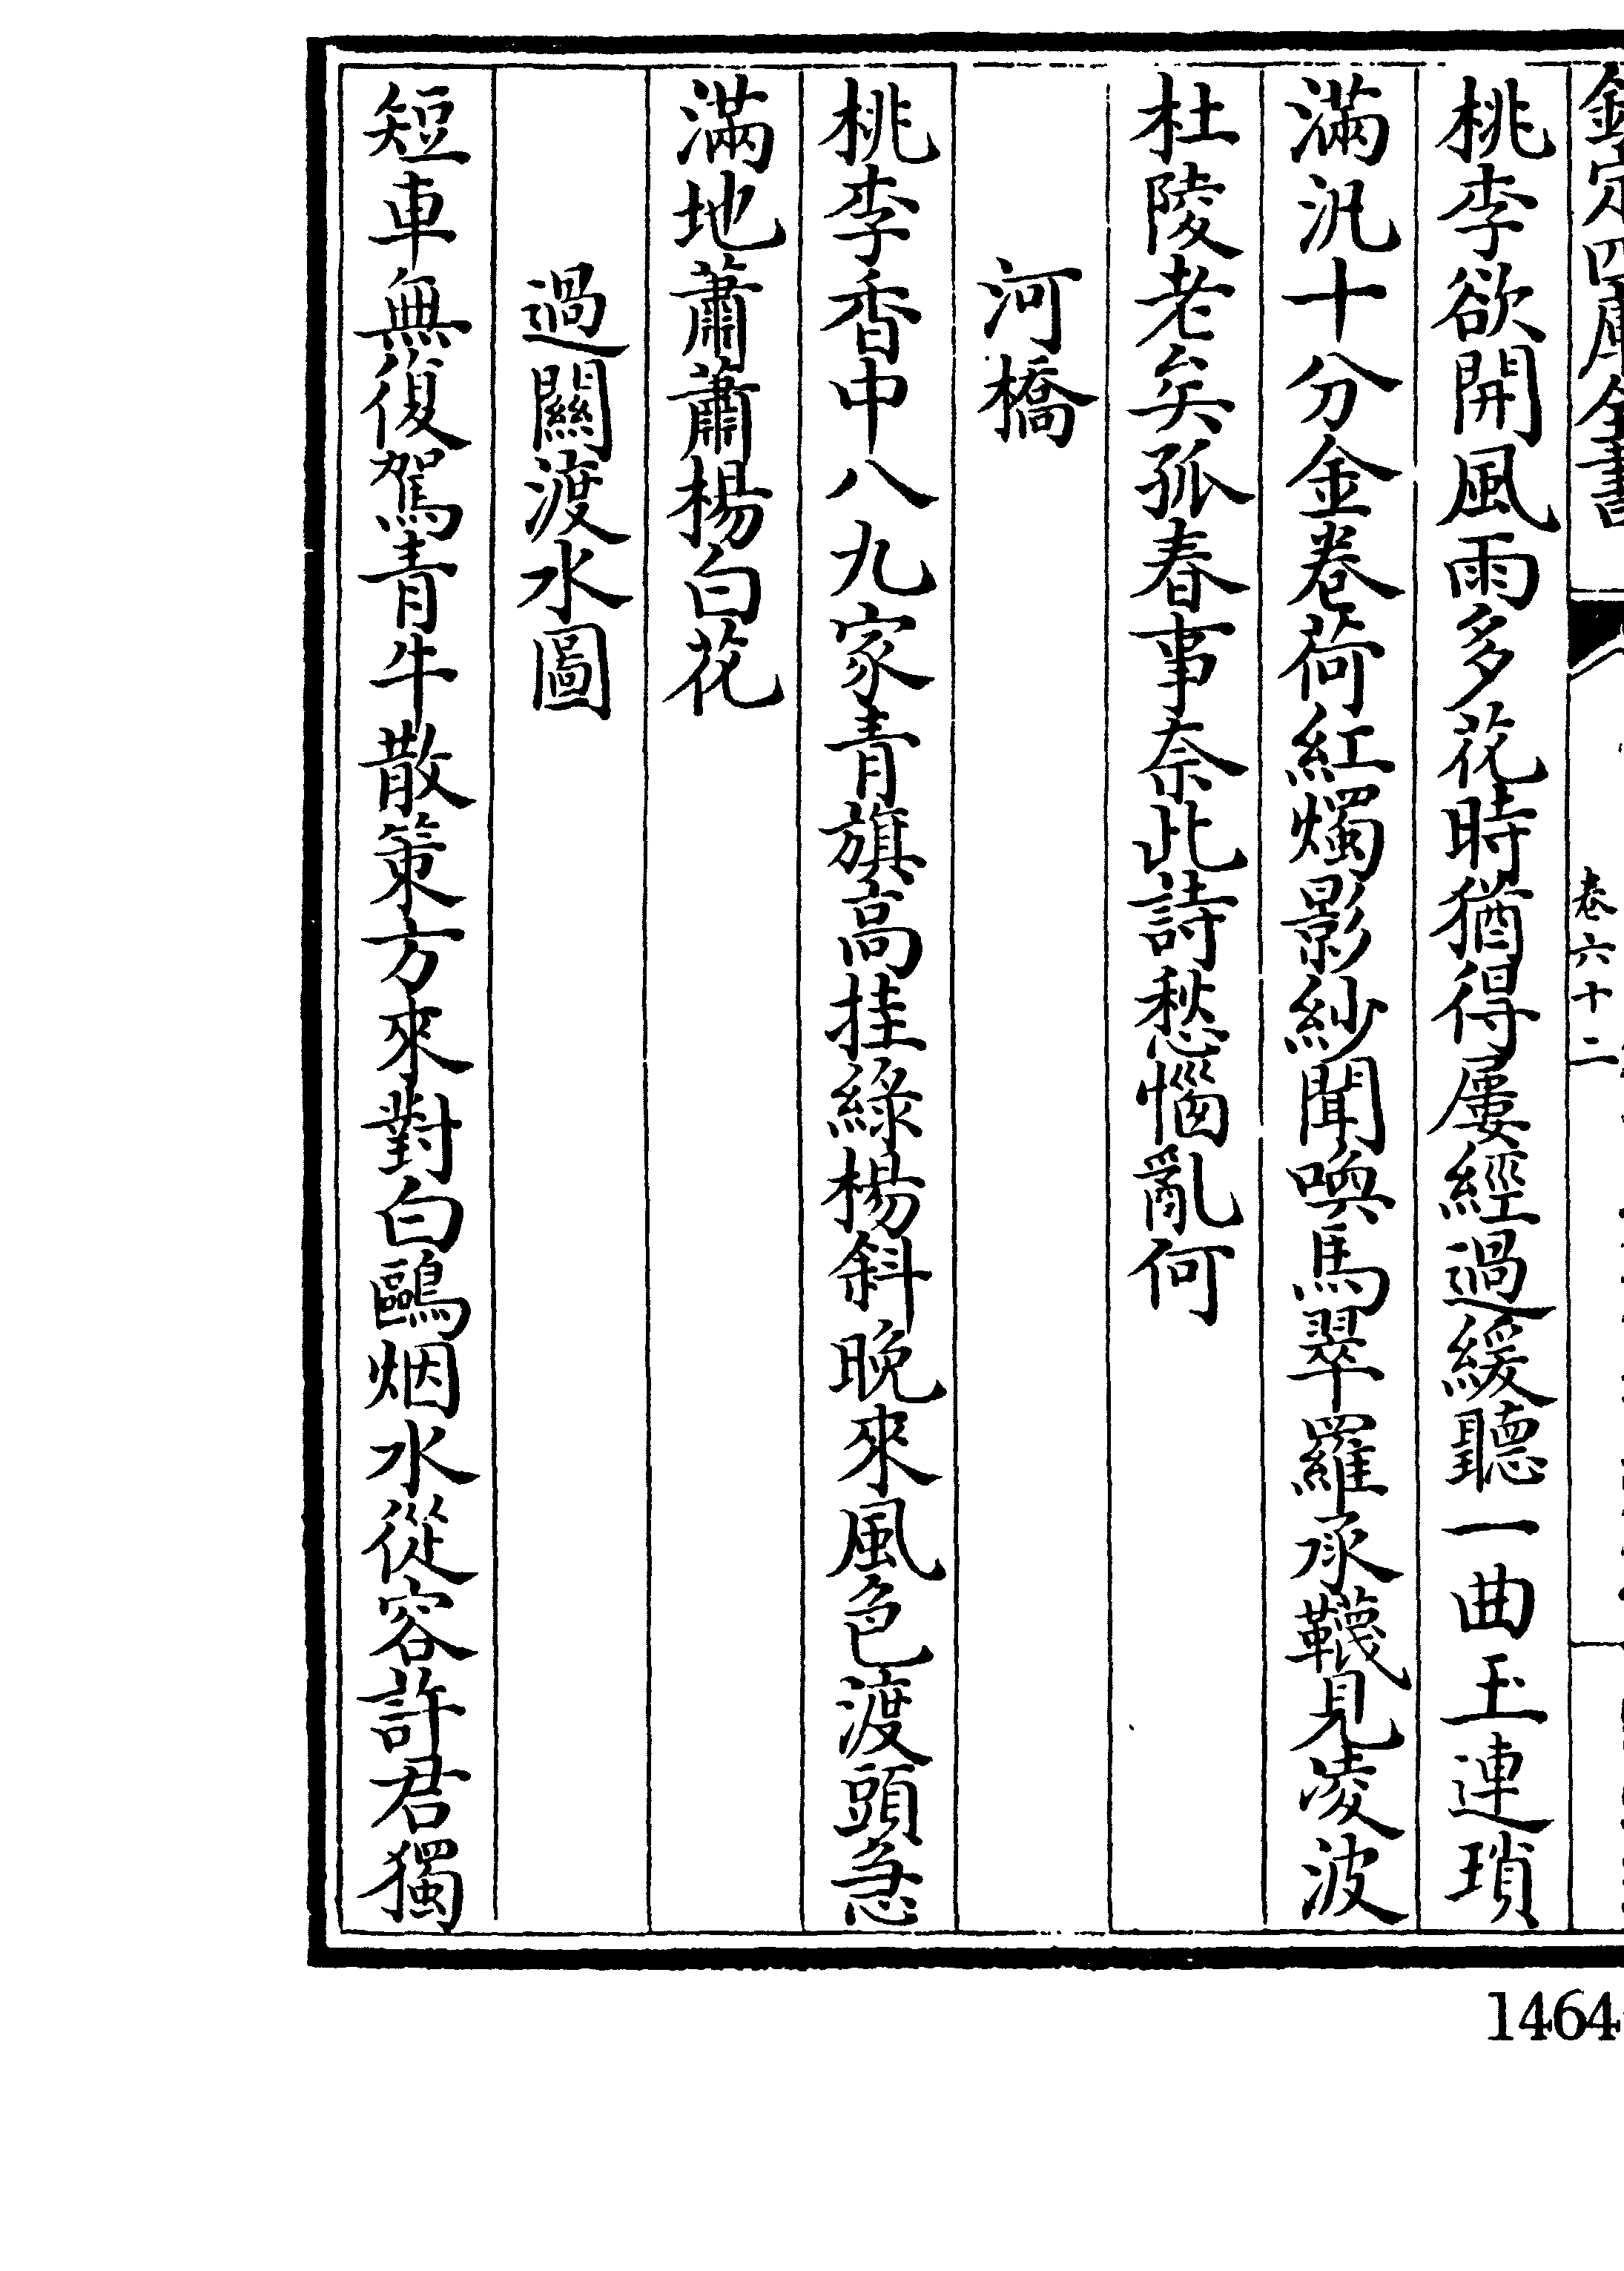 欽定四庫全書
卷六十二
桃李欲開風雨多花時猶得屢經過緩聽一曲玉連瑣
滿汎十分金卷荷紅燭影紗聞喚馬翠羅承韈見凌波
杜陵老矣孤春事奈此詩愁惱亂何
河橋
桃李香中八九家青旗高挂綠楊斜晚來風色渡頭急
滿地蕭蕭楊白花
過關渡水圖
短車無復駕青牛散策方來對白鷗烟水從容許君獨
1464